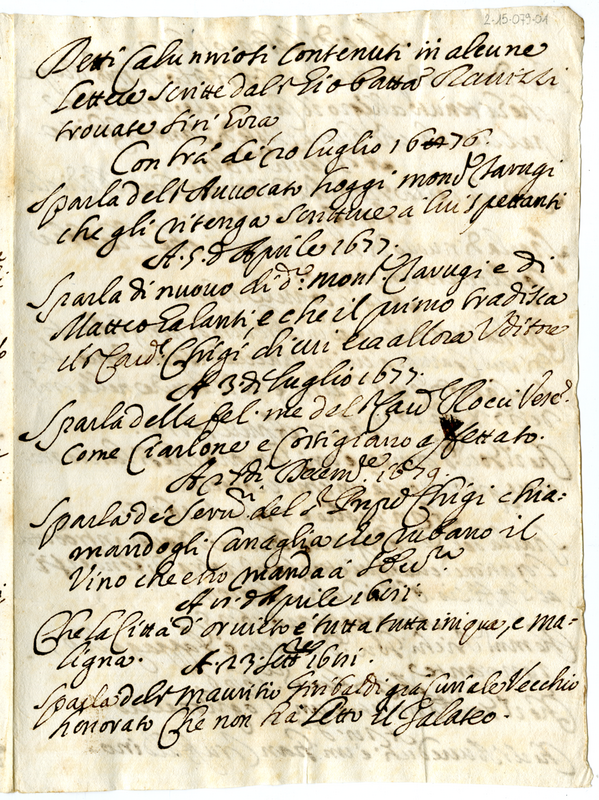 2-15-079-01
Detti Calunniosi Contenuti in alcune
Lettere scritte dal Sr Gio batta
trovate frà
Con trã de 20 luglio 1676.
Sparla del Sr Avvocato hoggi monsr Marugi
che gli ritenga scritture a lui spettanti
A. 5. d'Aprile 1677.
Sparla di nuovo di do. monsr Marugi e di
Matteo Galanti, e che il primo tradisca
il Sr Card. Chigi di cui era allora Uditore
A 3. di luglio 1677.
Sparla della fel. me. del Sr Card.
come Ciarlone e Cortigiano affettato.
A di Decemb.e 1679.
Sparla de Serv.ri del Sr Chigi chia=
mandogli Canaglia che rubano il
Vino che esso manda à
A d'Aprile
Che la Città d'orvieto è tutta tutta iniqua, e ma=
ligna. A. 23 Sett.re
Sparla del Sr mauritio già Curiale Vecchio
honorato Che non hà letto il Galateo.